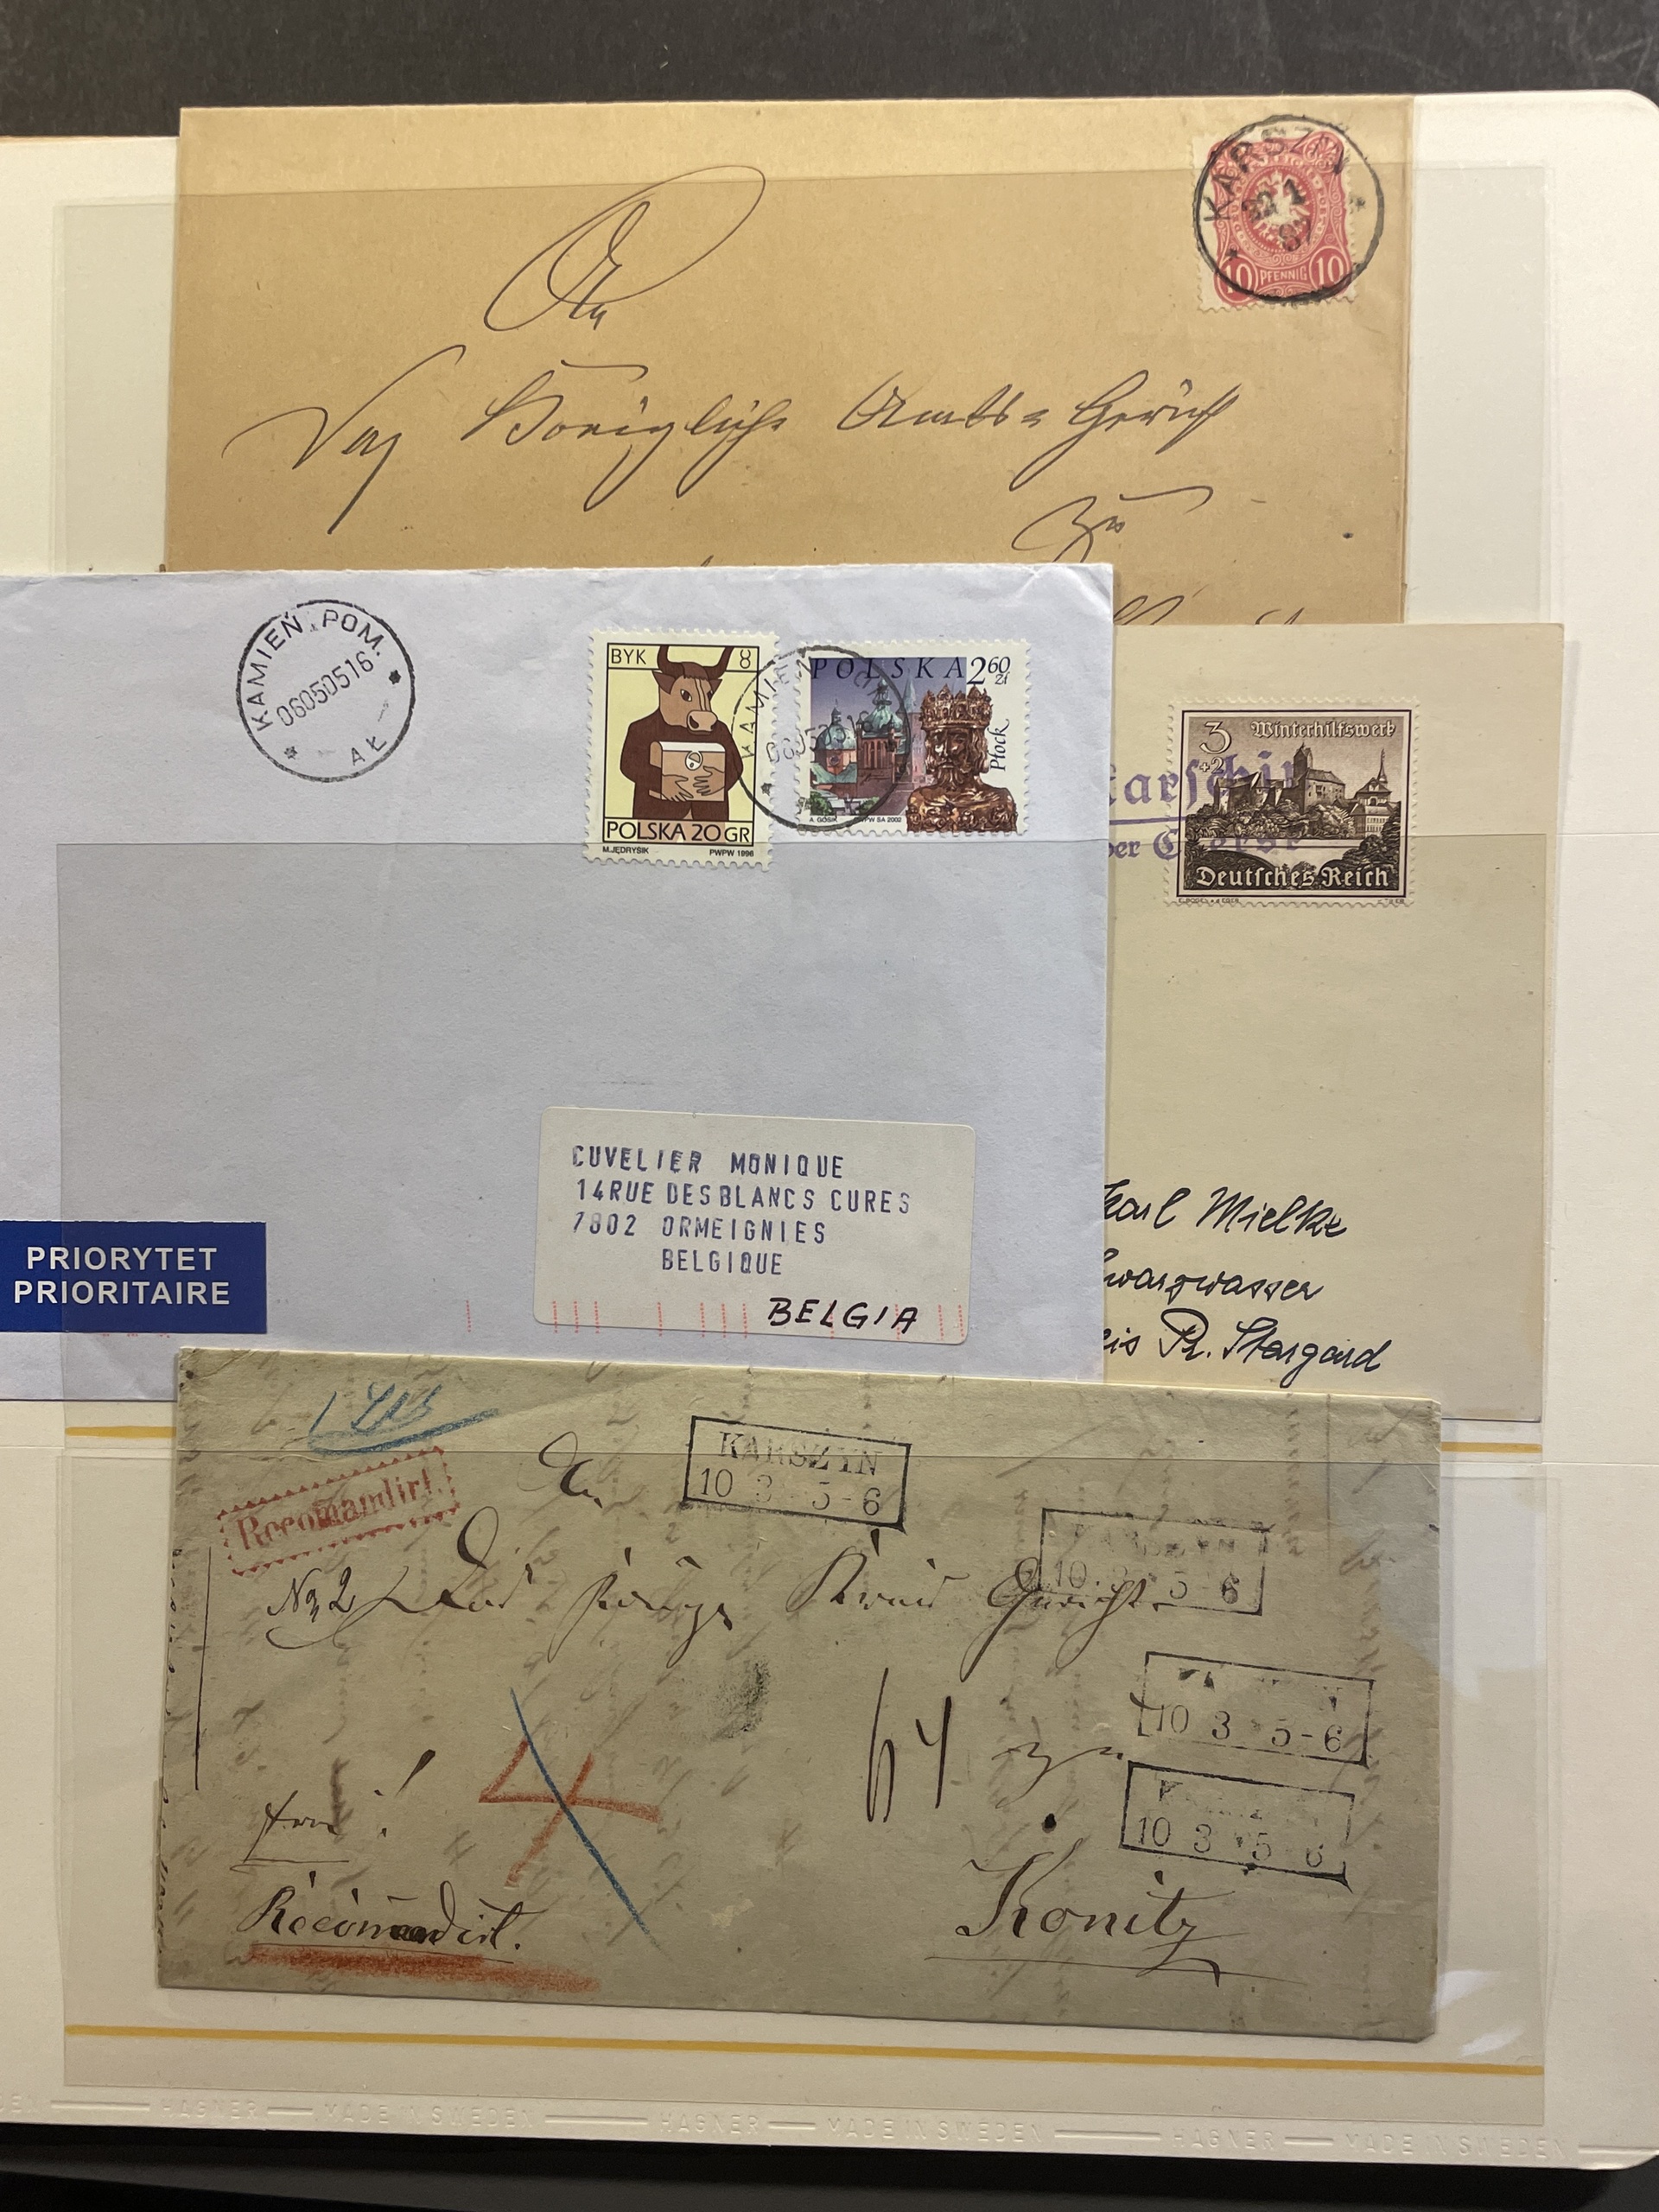 KARSZYN
22 1
87
10 PFENNIG 10
An
Das Königliche Amts=Gericht
zu
KAMIEŃ POM.
06050516
AŁ
BYK 8
POLSKA 20GR
M.JĘDRYSIK PWPW 1996
POLSKA 2 60 zł
Płock
A. GOSIK PWPW SA 2002
KAMIEŃ
3 Winterhilfswerk
+2
Deutsches Reich
CUVELIER MONIQUE
14RUE DESBLANCS CURES
7802 ORMEIGNIES
BELGIQUE
BELGIA
PRIORYTET
PRIORITAIRE
Karl Mielke
Schwarzwasser
Pr. Stargard
An
KARSZYN
10 3 5-6
Recomandirt.
No 2
Kreis Gericht
10 3 5-6
10 3 5-6
64 zu
10 3 5-6
Konitz
Recomandirt.
HAGNER — MADE IN SWEDEN — HAGNER — MADE IN SWEDEN — HAGNER — MADE IN SWEDEN